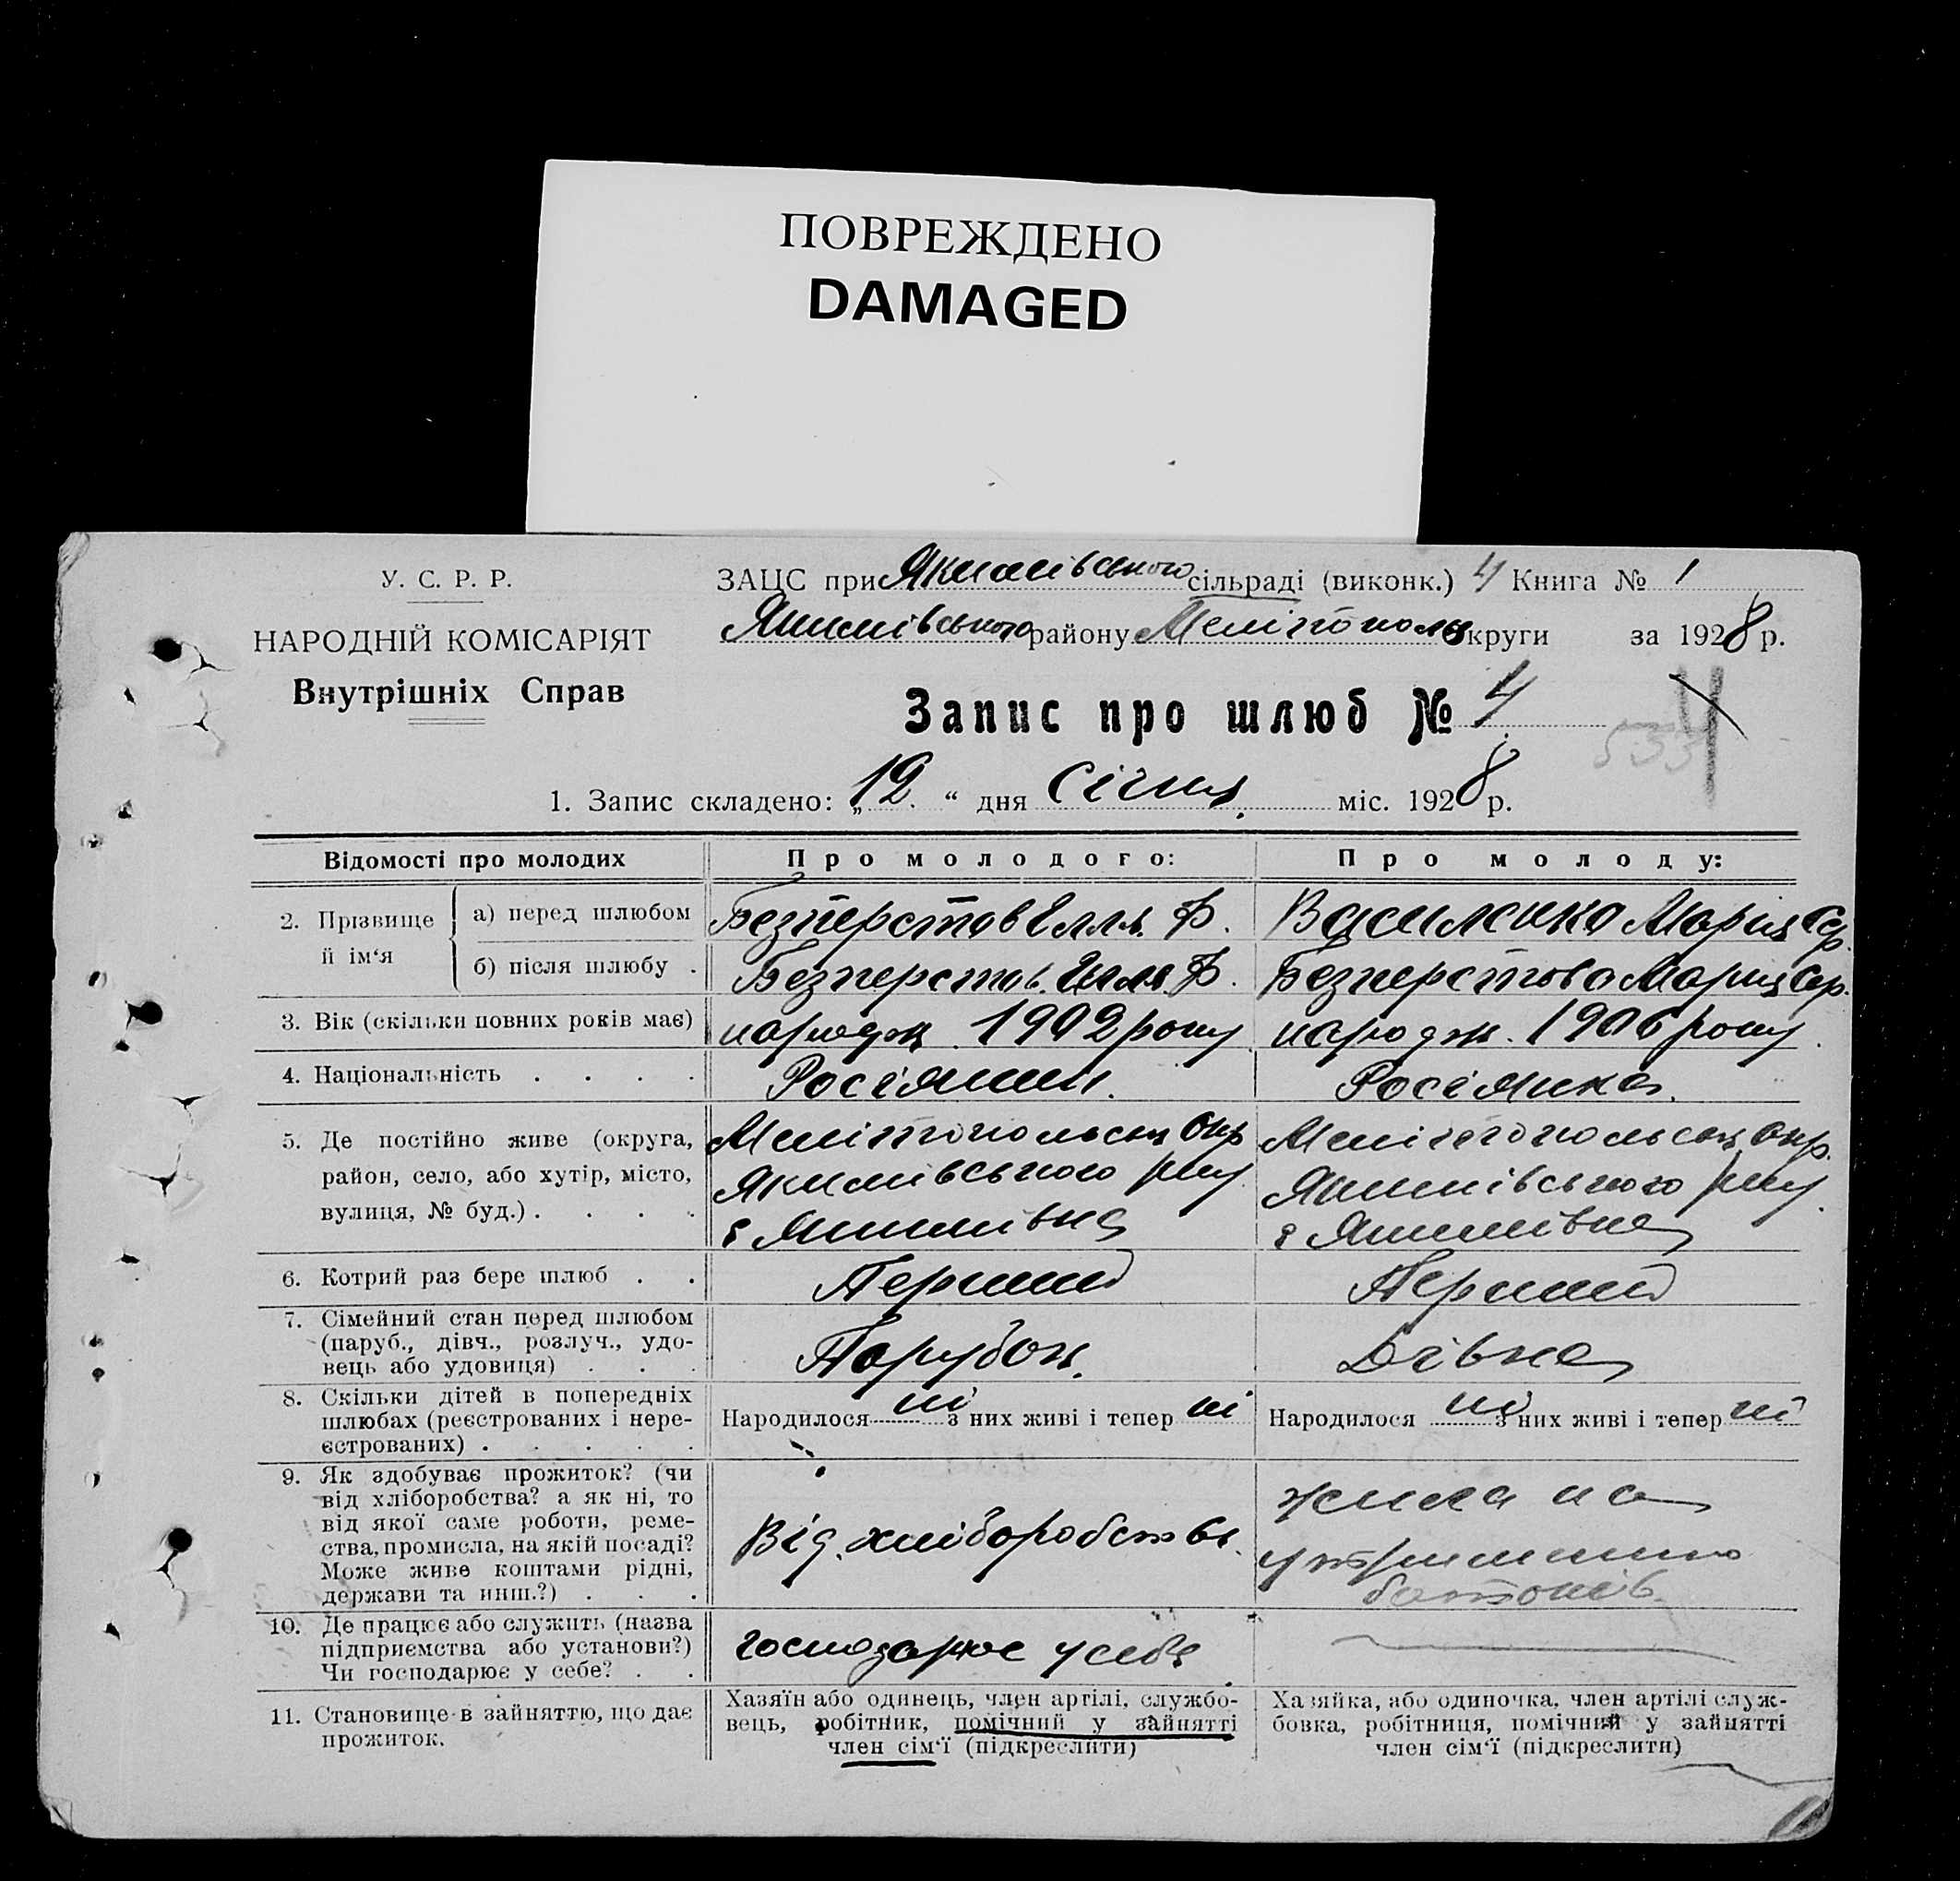 ПОВРЕЖДЕНО
DAMAGED
У. С. Р. Р.
НАРОДНІЙ КОМІСАРІЯТ
Внутрішніх Справ
ЗАЦС при Якимівського сільраді (виконк.) Книга № 1
Якимівського району Мелітополь округи за 1928 р.
Запис про шлюб № 4
533
1. Запис складено: „12“ дня Січня міс. 1928 р.
Відомості про молодих
Про молодого:
Про молоду:
2. Прізвище й ім‘я
а) перед шлюбом
Безперстов Ілля Ф.
Василенко Марія Єф.
б) після шлюбу .
Безперстов Ілля Ф.
Безперстова Марія
3. Вік (скільки повних років має)
народж. 1902 року
народж. 1906 року
4. Національність . . . .
Росіянин.
Росіянка.
5. Де постійно живе (округа,
район, село, або хутір, місто,
вулиця, № буд.) . . . .
Мелітопольськ Окр
Якимівського р-ну
с Якимівка
Мелітопольськ Окр.
Якимівського р-ну
с Якимівка
6. Котрий раз бере шлюб . .
Перший
Перший
7. Сімейний стан перед шлюбом
(паруб., дівч., розлуч., удо-
вець або удовиця) . . .
Парубок.
Дівка
8. Скільки дітей в попередніх
шлюбах (реєстрованих і нере-
єстрованих) . . . . .
Народилося ні з них живі і тепер ні
Народилося ні з них живі і тепер ні
9. Як здобуває прожиток? (чи
від хліборобства? а як ні, то
від якої саме роботи, реме-
ства, промисла, на якій посаді?
Може живе коштами рідні,
держави та инш.?) . . .
Від хліборобства.
жила на
утриманню
батьків.
10. Де працює або служить (назва
підприємства або установи?)
Чи господарює у себе? . .
господарює у себе
11. Становище в зайняттю, що дає
прожиток.
Хазяїн або одинець, член артілі, службо-
вець, робітник, помічний у зайнятті
член сім‘ї (підкреслити)
Хазяйка, або одиночка, член артілі служ-
бовка, робітниця, помічний у зайнятті
член сім‘ї (підкреслити)